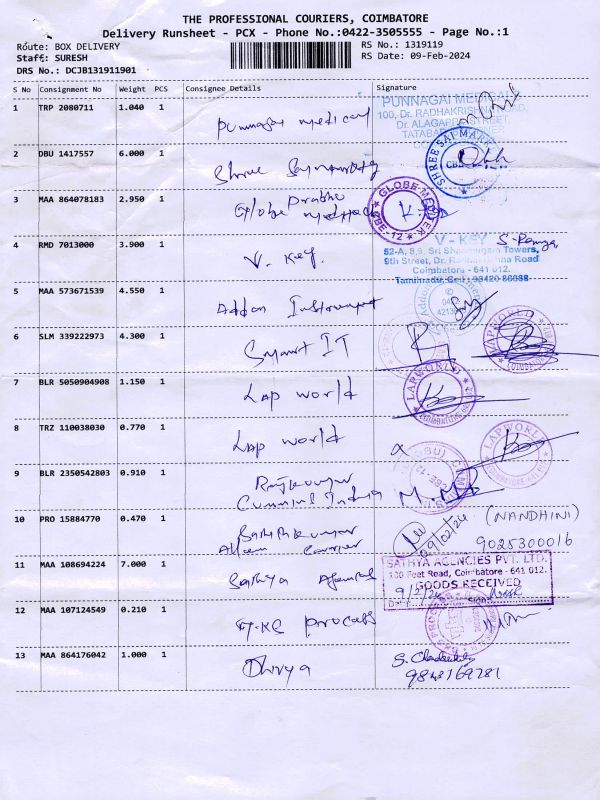 THE PROFESSIONAL COURIERS, COIMBATORE
Delivery Runsheet - PCX - Phone No.:0422-3505555 - Page No.:1
Route: BOX DELIVERY
RS No.: 1319119
Staff: SURESH
RS Date: 09-Feb-2024
DRS No.: DCJB131911901
S No Consignment No Weight PCS Consignee Details Signature
1 TRP 2080711 1.040 1 Punnagai Medical
PUNNAGAI MEDICAL
100, Dr. RADHAKRISHNAN ROAD,
Dr. ALAGAPPA STREET,
TATABAD
2 DBU 1417557 6.000 1 Shree
SHREE SAI MARK
3 MAA 864078183 2.950 1 Prabhu
Globe
GLOBE-MEDITEK
CBE-12
4 RMD 7013000 3.900 1 V. Key.
V - KEY
52-A, 8,9, Sri Towers,
9th Street, Dr. Road
Coimbatore - 641 012.
Tamilnadu, Cell: 93420 86688
5 MAA 573671539 4.550 1 Addon Instrument
6 SLM 339222973 4.300 1 Smart IT
LAPWORLD
COIMBATORE
7 BLR 5050904908 1.150 1 Lap world
LAPWORLD
COIMBATORE
8 TRZ 110038030 0.770 1 Lap world
LAPWORLD
9 BLR 2350542803 0.910 1 Rajkumar
Cummins India
CBE-12
10 PRO 15884770 0.470 1 Sathishkumar
Carrier
09/02/24
(NANDHINI)
9025300016
11 MAA 108694224 7.000 1 Sathya Agencies
SATHYA AGENCIES PVT. LTD.
100 Feet Road, Coimbatore - 641 012.
GOODS RECEIVED
9/2/24
Date: Sign:
12 MAA 107124549 0.210 1 Process
13 MAA 864176042 1.000 1 Dhivya
9843169281